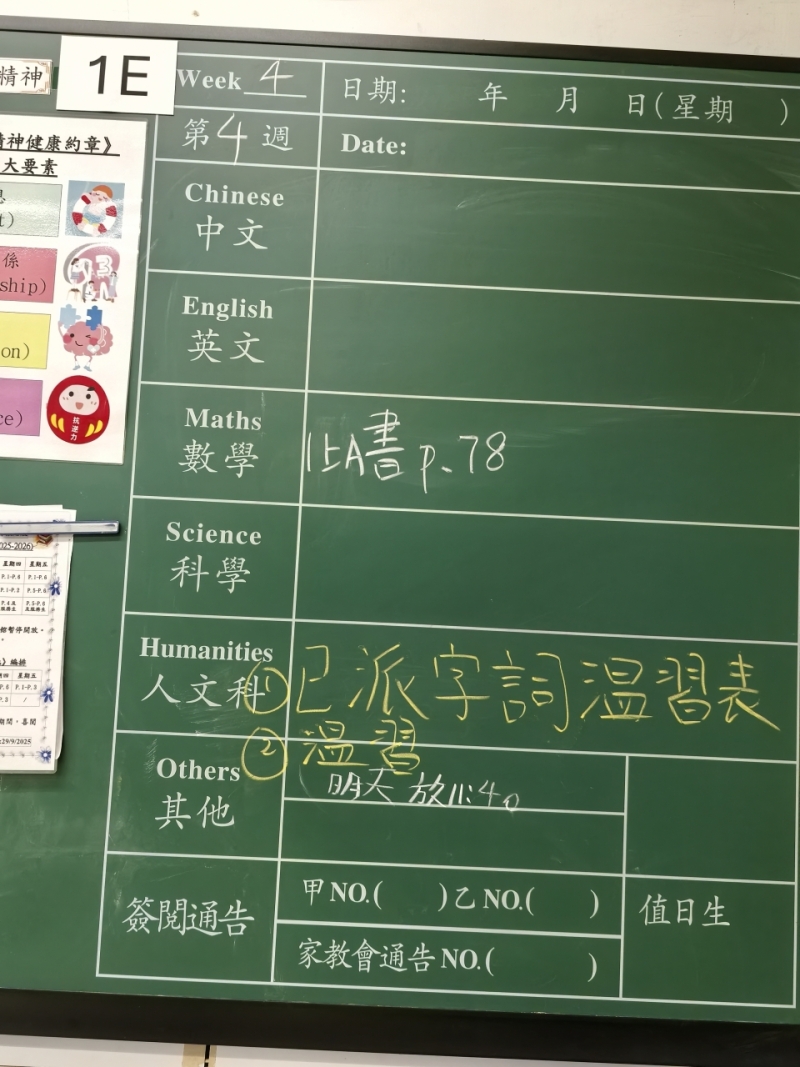 精神
1E
Week 4
日期: 年 月 日(星期 )
第4週
Date:
精神健康約章》
大要素
係
ship)
on)
ce)
抗逆力
Chinese
中文
English
英文
Maths
數學
1上A書 p.78
Science
科學
Humanities
人文科
①已派字詞溫習表
②溫習
Others
其他
明天放11:40
簽閱通告
甲NO.( )乙NO.( )
值日生
家教會通告NO.( )
2025-2026)
星期四 星期五
P.1-P.6 P.1-P.6
館暫停開放。
》編排
星期四 星期五
P.1-P.3
29/9/2025